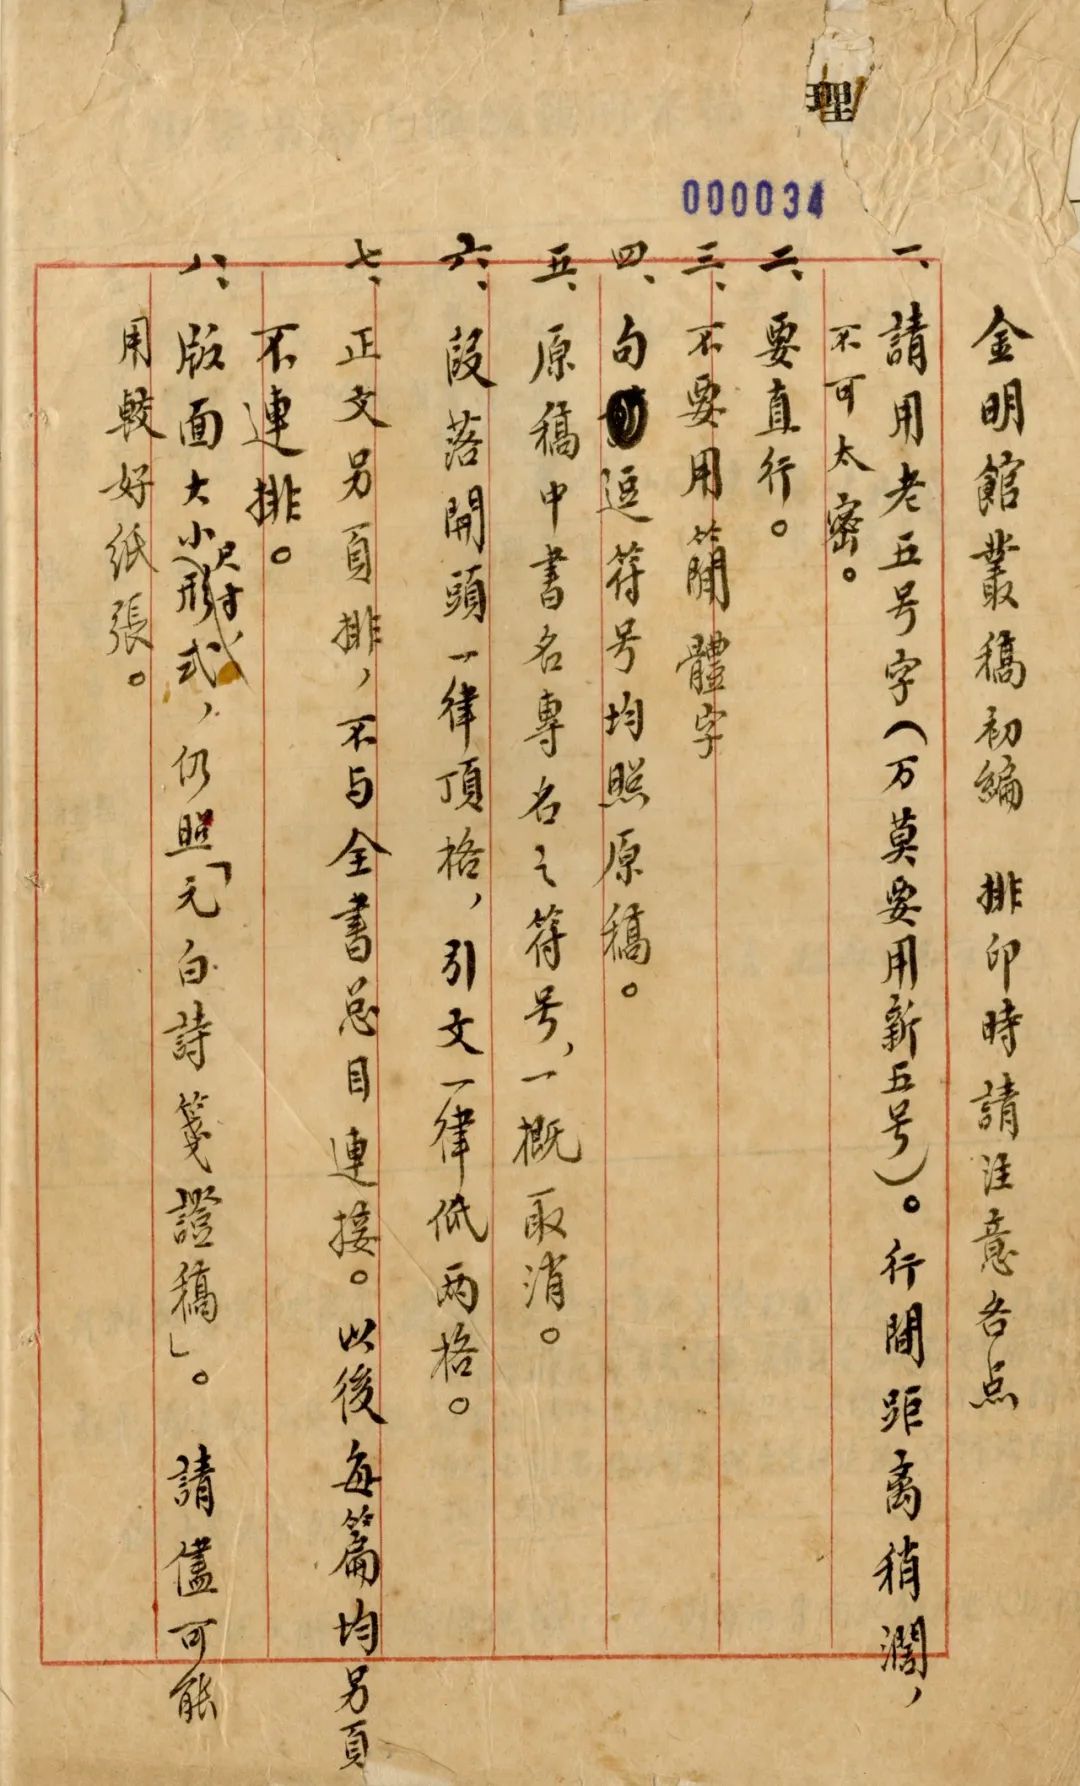 理
000034
金明館叢稿初編　排印時請注意各点
一、請用老五号字（万莫要用新五号）。行間距离稍濶，
不可太密。
二、要直行。
三、不要用簡體字
四、句逗符号均照原稿。
五、原稿中書名專名之符号，一概取消。
六、段落開頭一律頂格，引文一律低两格。
七、正文另頁排，不与全書总目連接。以後每篇均另頁
不連排。
八、版面大小（尺寸形式），仍照「元白詩箋證稿」。請儘可能
用較好紙張。